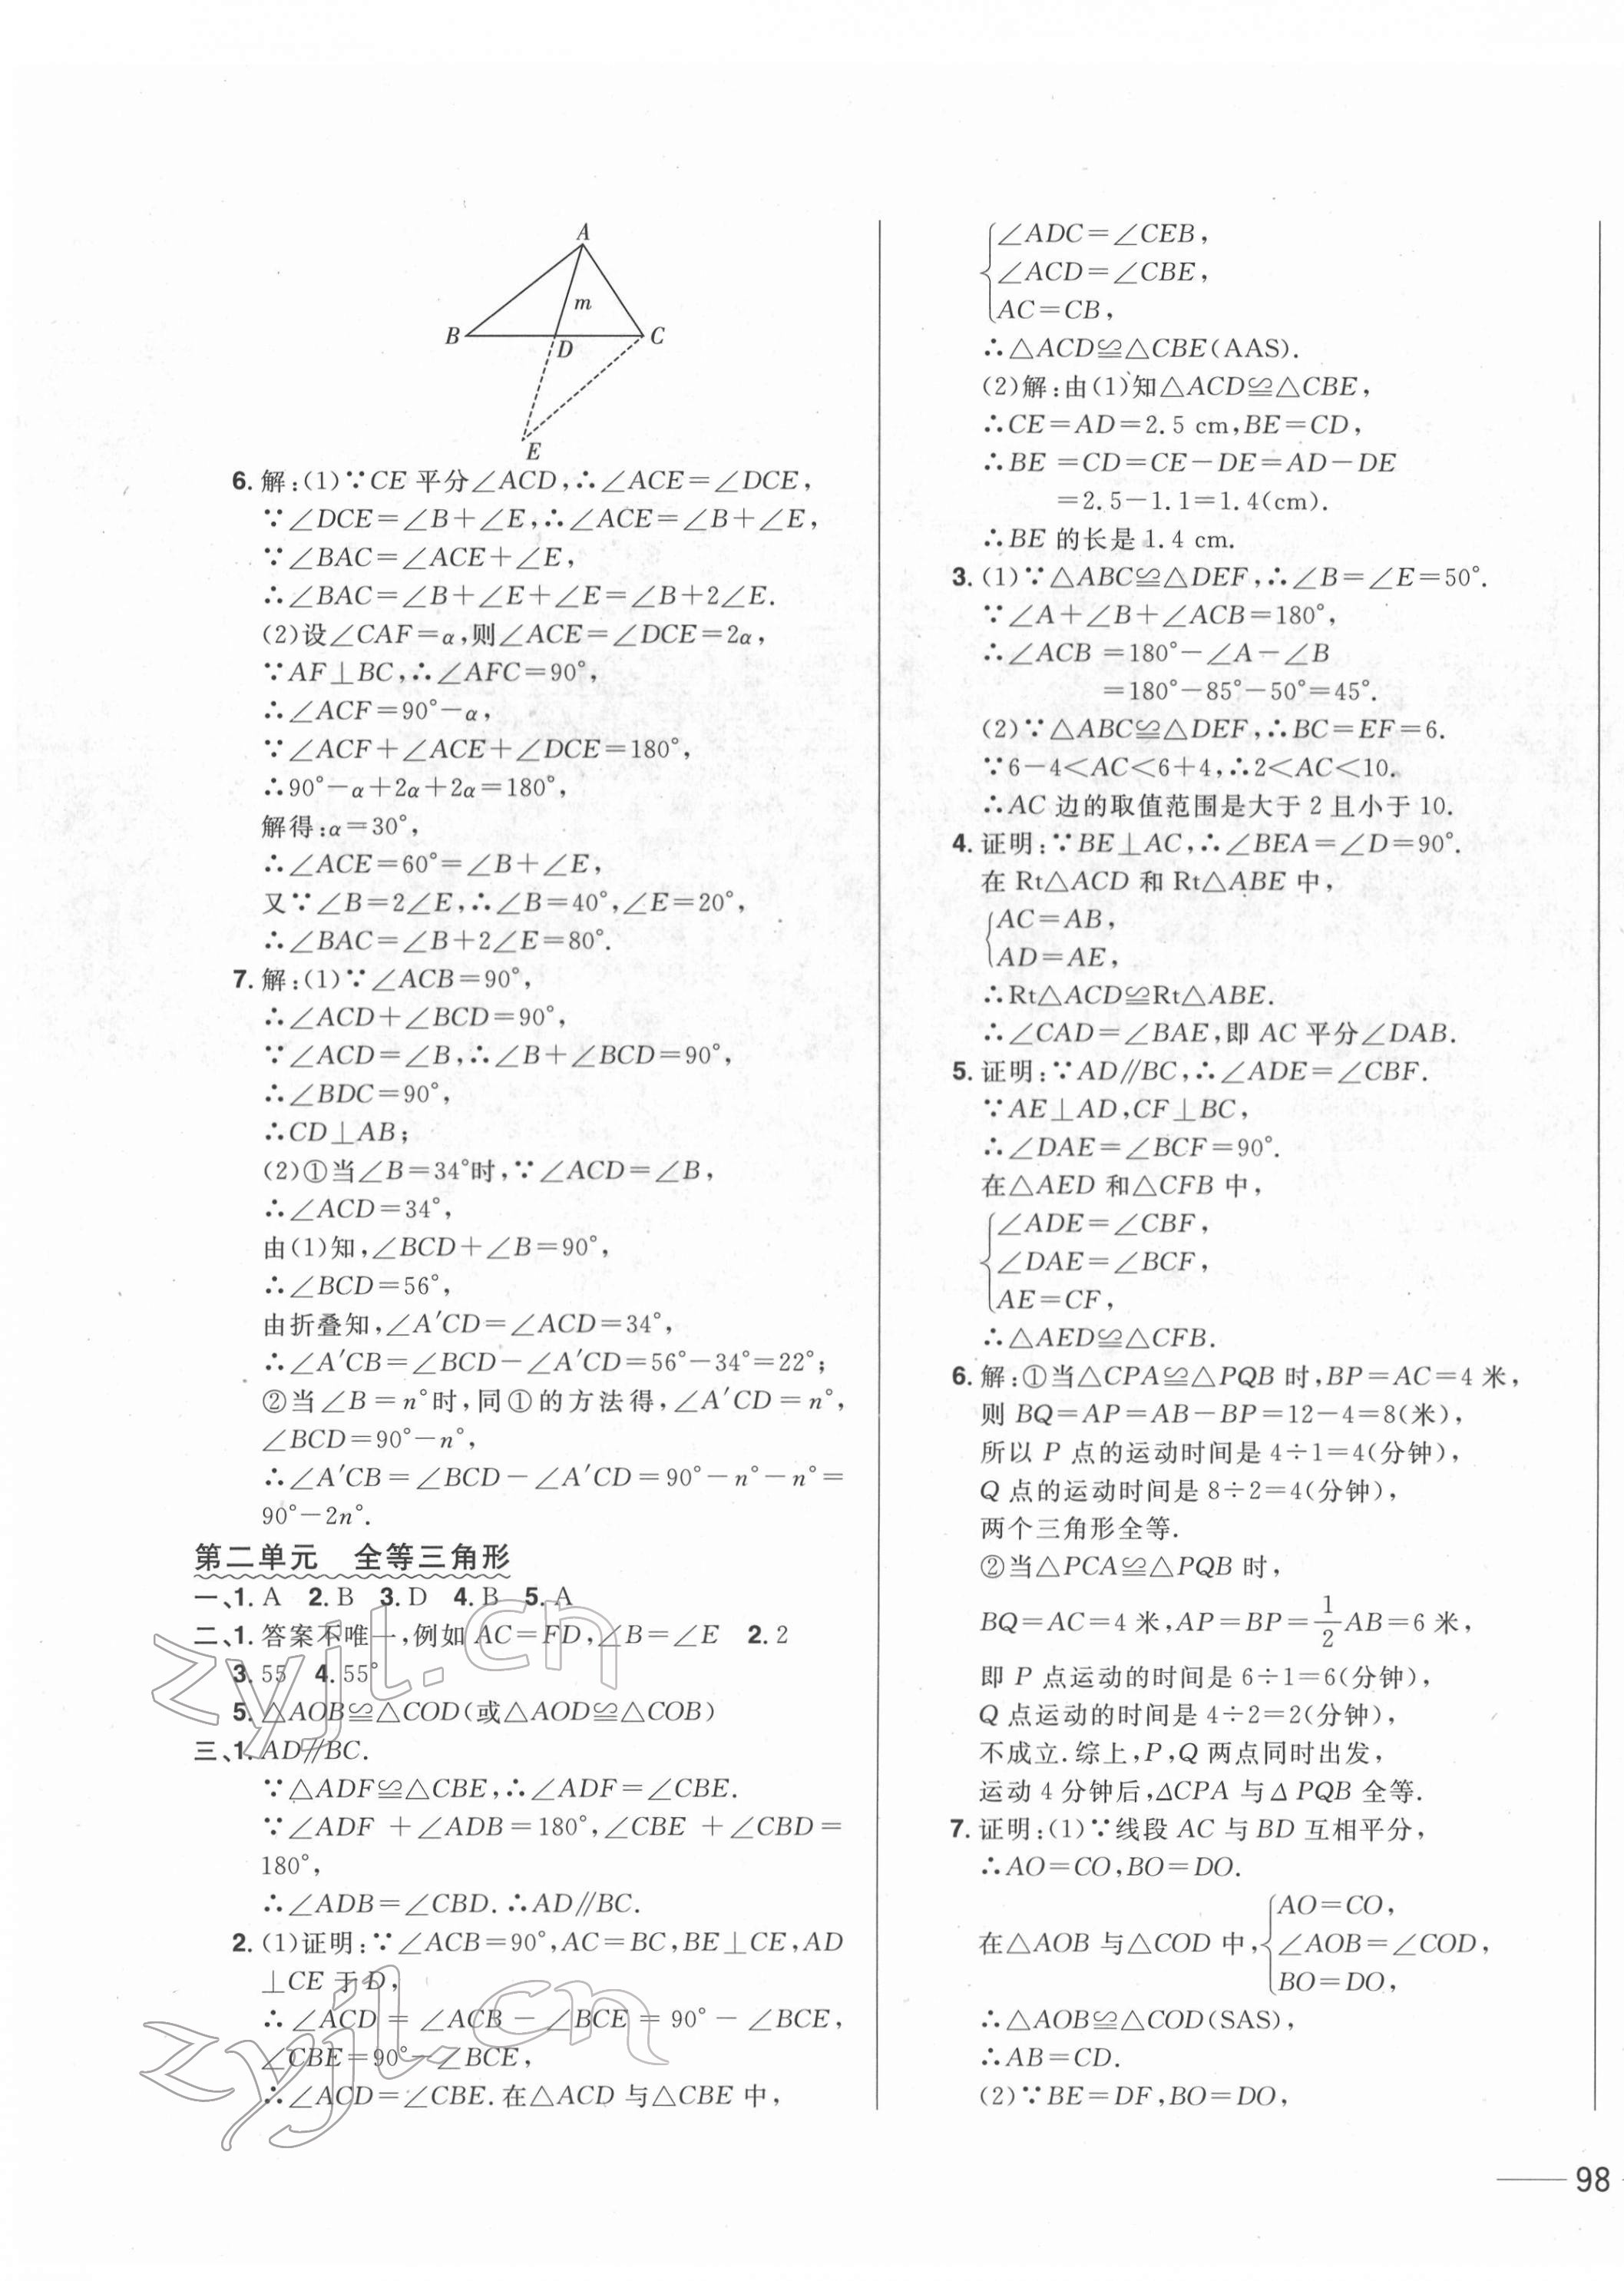 A
m
B
D
C
E
6. 解:(1)∵CE 平分∠ACD,∴∠ACE=∠DCE,
∵∠DCE=∠B+∠E,∴∠ACE=∠B+∠E,
∵∠BAC=∠ACE+∠E,
∴∠BAC=∠B+∠E+∠E=∠B+2∠E.
(2)设∠CAF=α,则∠ACE=∠DCE=2α,
∵AF⊥BC,∴∠AFC=90°,
∴∠ACF=90°-α,
∵∠ACF+∠ACE+∠DCE=180°,
∴90°-α+2α+2α=180°,
解得:α=30°,
∴∠ACE=60°=∠B+∠E,
又∵∠B=2∠E,∴∠B=40°,∠E=20°,
∴∠BAC=∠B+2∠E=80°.
7. 解:(1)∵∠ACB=90°,
∴∠ACD+∠BCD=90°,
∵∠ACD=∠B,∴∠B+∠BCD=90°,
∴∠BDC=90°,
∴CD⊥AB;
(2)①当∠B=34°时,∵∠ACD=∠B,
∴∠ACD=34°,
由(1)知,∠BCD+∠B=90°,
∴∠BCD=56°,
由折叠知,∠A′CD=∠ACD=34°,
∴∠A′CB=∠BCD-∠A′CD=56°-34°=22°;
②当∠B=n°时,同①的方法得,∠A′CD=n°,
∠BCD=90°-n°,
∴∠A′CB=∠BCD-∠A′CD=90°-n°-n°=
90°-2n°.
第二单元 全等三角形
一、1. A 2. B 3. D 4. B 5. A
二、1. 答案不唯一,例如 AC=FD,∠B=∠E 2. 2
3. 55 4. 55°
5. △AOB≌△COD(或△AOD≌△COB)
三、1. AD∥BC.
∵△ADF≌△CBE,∴∠ADF=∠CBE.
∵∠ADF+∠ADB=180°,∠CBE+∠CBD=
180°,
∴∠ADB=∠CBD.∴AD∥BC.
2. (1)证明:∵∠ACB=90°,AC=BC,BE⊥CE,AD
⊥CE 于 D,
∴∠ACD=∠ACB-∠BCE=90°-∠BCE,
∠CBE=90°-∠BCE,
∴∠ACD=∠CBE.在△ACD 与△CBE 中,
∠ADC=∠CEB,
∠ACD=∠CBE,
AC=CB,
∴△ACD≌△CBE(AAS).
(2)解:由(1)知△ACD≌△CBE,
∴CE=AD=2.5 cm,BE=CD,
∴BE=CD=CE-DE=AD-DE
=2.5-1.1=1.4(cm).
∴BE 的长是 1.4 cm.
3. (1)∵△ABC≌△DEF,∴∠B=∠E=50°.
∵∠A+∠B+∠ACB=180°,
∴∠ACB=180°-∠A-∠B
=180°-85°-50°=45°.
(2)∵△ABC≌△DEF,∴BC=EF=6.
∵6-4<AC<6+4,∴2<AC<10.
∴AC 边的取值范围是大于 2 且小于 10.
4. 证明:∵BE⊥AC,∴∠BEA=∠D=90°.
在 Rt△ACD 和 Rt△ABE 中,
AC=AB,
AD=AE,
∴Rt△ACD≌Rt△ABE.
∴∠CAD=∠BAE,即 AC 平分∠DAB.
5. 证明:∵AD∥BC,∴∠ADE=∠CBF.
∵AE⊥AD,CF⊥BC,
∴∠DAE=∠BCF=90°.
在△AED 和△CFB 中,
∠ADE=∠CBF,
∠DAE=∠BCF,
AE=CF,
∴△AED≌△CFB.
6. 解:①当△CPA≌△PQB 时,BP=AC=4 米,
则 BQ=AP=AB-BP=12-4=8(米),
所以 P 点的运动时间是 4÷1=4(分钟),
Q 点的运动时间是 8÷2=4(分钟),
两个三角形全等.
②当△PCA≌△PQB 时,
BQ=AC=4 米,AP=BP=1/2AB=6 米,
即 P 点运动的时间是 6÷1=6(分钟),
Q 点运动的时间是 4÷2=2(分钟),
不成立.综上,P,Q 两点同时出发,
运动 4 分钟后,△CPA 与△PQB 全等.
7. 证明:(1)∵线段 AC 与 BD 互相平分,
∴AO=CO,BO=DO.
AO=CO,
在△AOB 与△COD 中, ∠AOB=∠COD,
BO=DO,
∴△AOB≌△COD(SAS),
∴AB=CD.
(2)∵BE=DF,BO=DO,
98
zyjl.cn
zyjl.cn